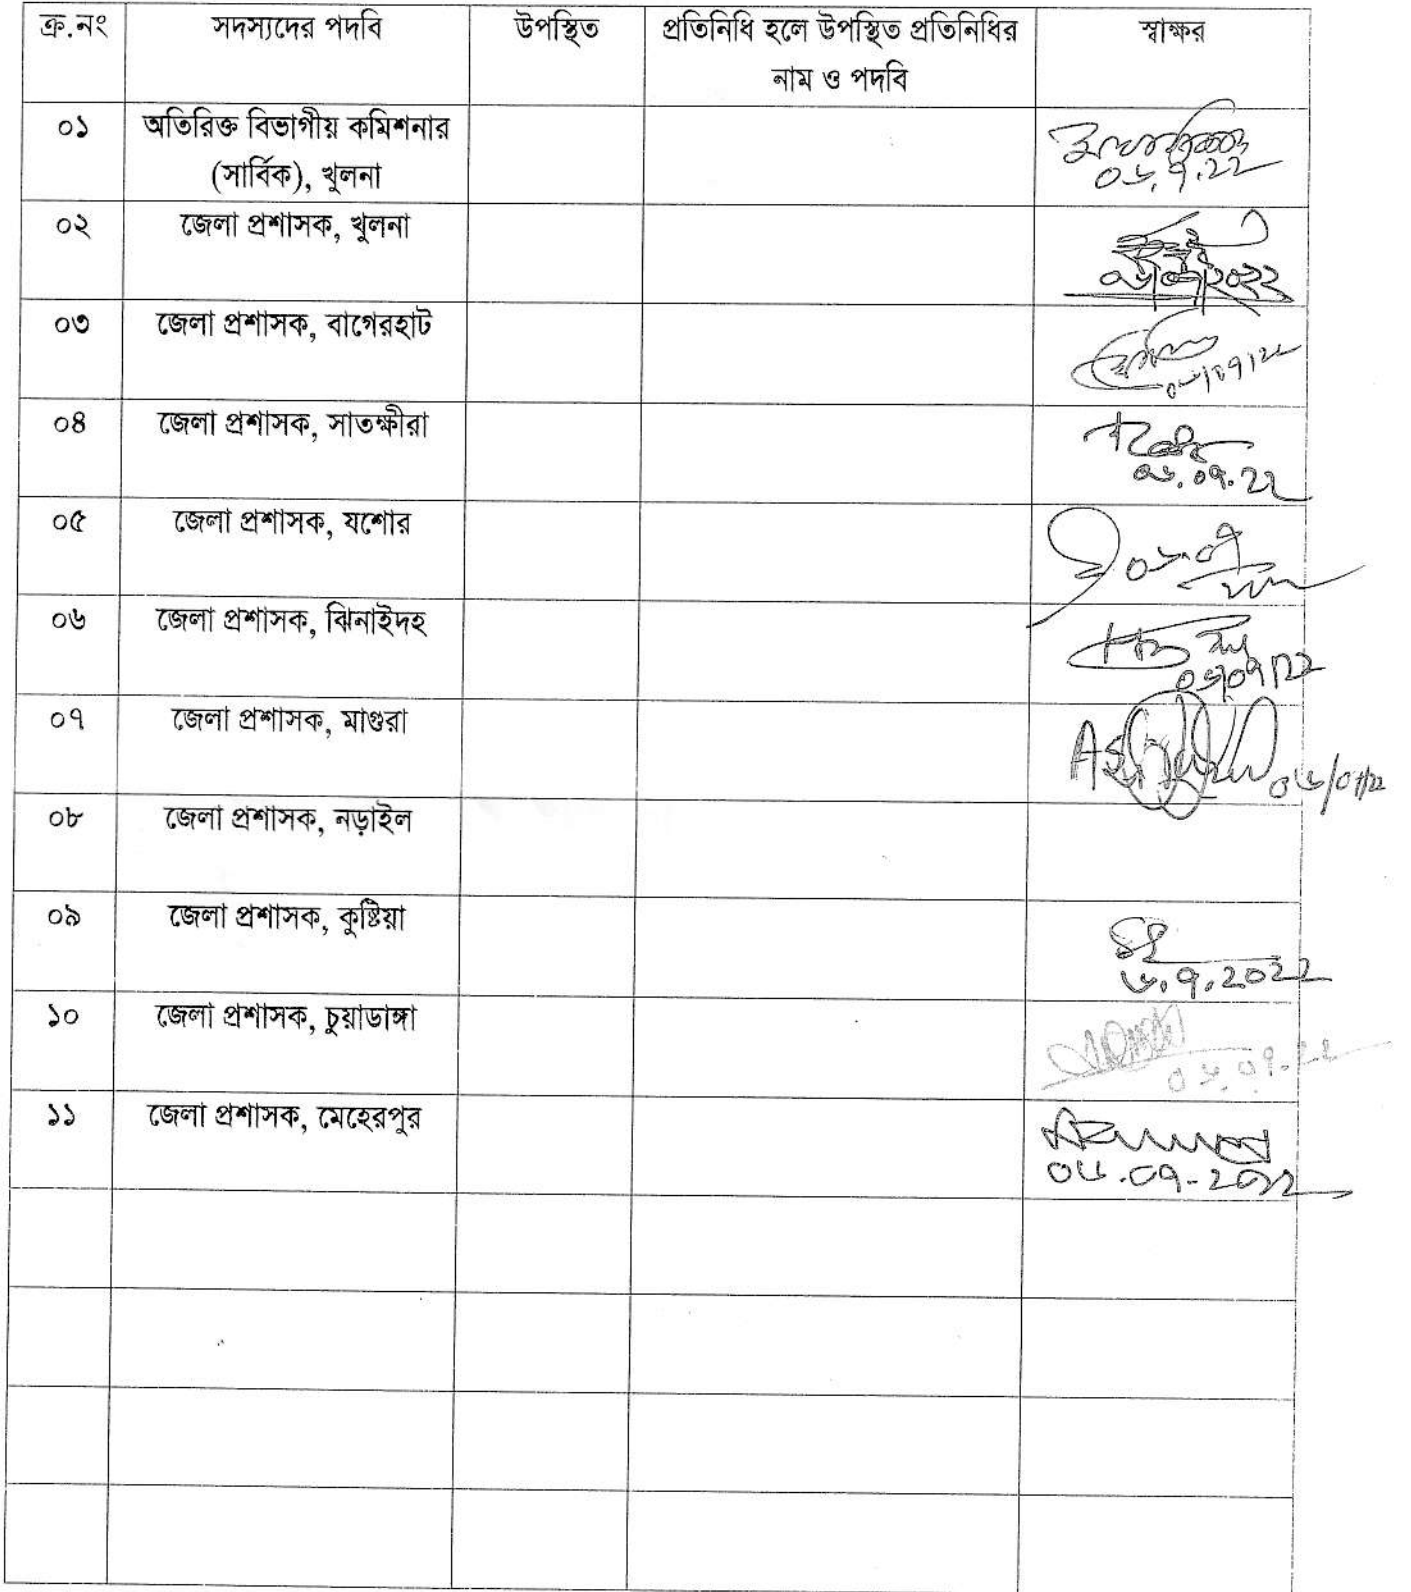 ক্র.নং সদস্যদের পদবি উপস্থিত প্রতিনিধি হলে উপস্থিত প্রতিনিধির স্বাক্ষর
নাম ও পদবি
০১ অতিরিক্ত বিভাগীয় কমিশনার
(সার্বিক), খুলনা
০৬.৯.২২
০২ জেলা প্রশাসক, খুলনা
০৩ জেলা প্রশাসক, বাগেরহাট
০৪ জেলা প্রশাসক, সাতক্ষীরা
০৬.০৯.২২
০৫ জেলা প্রশাসক, যশোর
০৬ জেলা প্রশাসক, ঝিনাইদহ
০৭ জেলা প্রশাসক, মাগুরা
০৮ জেলা প্রশাসক, নড়াইল
০৯ জেলা প্রশাসক, কুষ্টিয়া
৬.৯.২০২২
১০ জেলা প্রশাসক, চুয়াডাঙ্গা
০৬.০৯.২২
১১ জেলা প্রশাসক, মেহেরপুর
০৬.০৯-২০২২